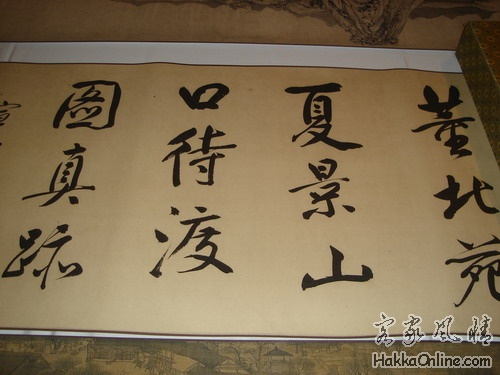 董北苑
夏景山
口待渡
圖真跡
客家风情
HakkaOnline.com